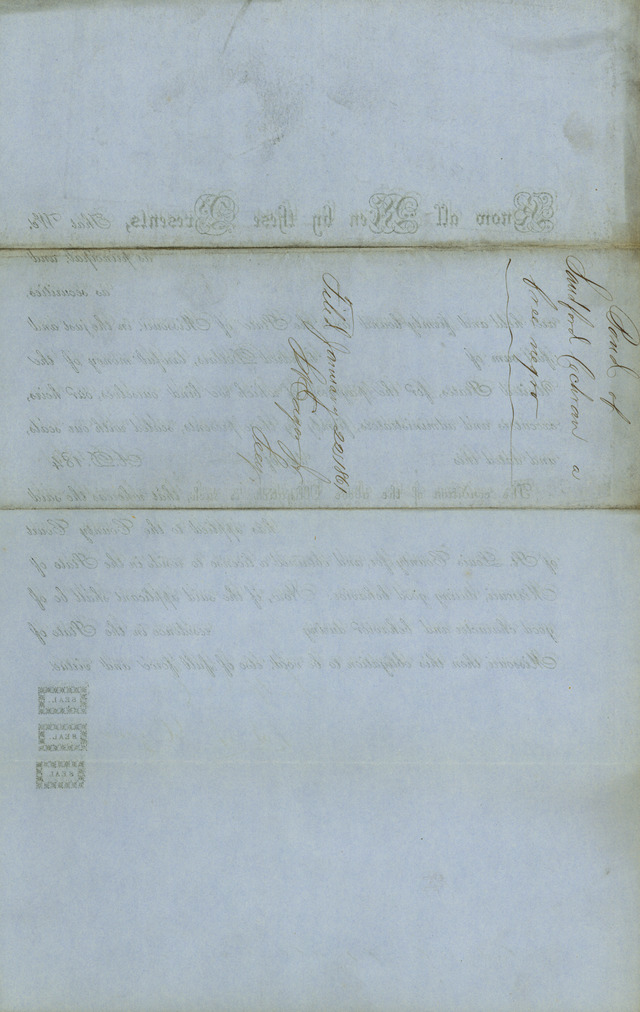 Bond of
Sandford Cochran a
free negro
Filed January 22 1861
Know all Men by these Presents, That We,
as principal, and
as securities,
are held and firmly bound the State of Missouri, in the just and
full sum of Dollars, lawful money of the
United States, for the payment of which we bind ourselves, our heirs,
executors and administrators, firmly by these presents, sealed with our seals,
and dated this A.D. 184
The condition of the above Obligation is such, that whereas the said
has applied to the County Court
of St. Louis County for and obtained a license to reside in the State of
Missouri, during good behavior. Now, if the said applicant shall be of
good character and behavior during residence in the State of
Missouri, then this obligation to be void, else of full force and virtue.
SEAL.
SEAL.
SEAL